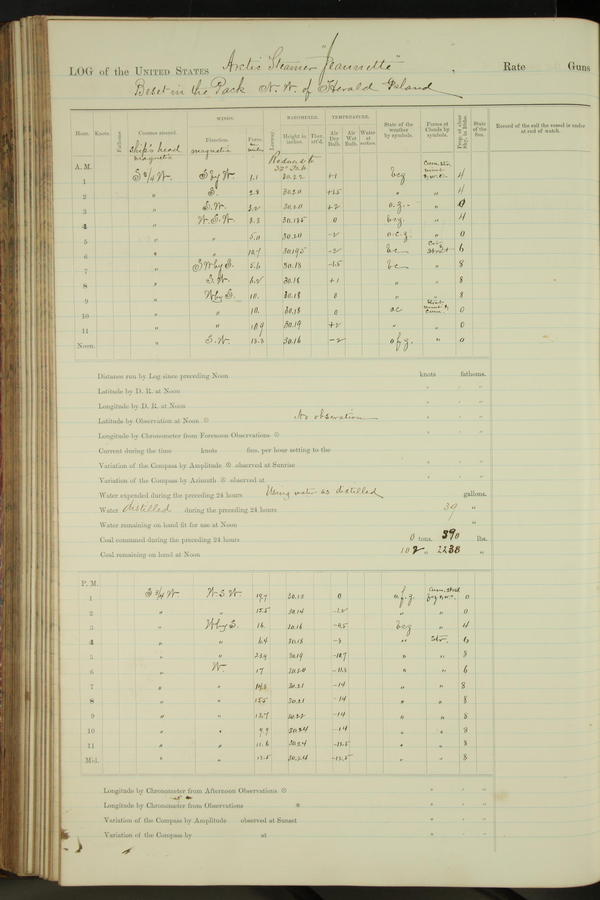 LOG of the UNITED STATES Arctic Steamer "Jeannette", Rate Guns
Beset in the Pack N. W. of Herald Island
WINDS. BAROMETER. TEMPERATURE.
Hour. Knots. Fathoms. Courses steered. Direction. Force. Leeway. Height in inches. Ther. att'd. Air Dry Bulb. Air Wet Bulb. Water at surface. State of the weather by symbols. Forms of Clouds by symbols. Prop. of clear Sky, in 10ths. State of the Sea. Record of the sail the vessel is under at end of watch.
ship's head magnetic magnetic Reduced to
A. M.
1 S 3/4 W. S by W. 1.1 30.22 +1 bcg 4
2 " S. 2.8 30.20 +1.5 " " 4
3 " S. W. 3.2 30.20 +2 o.g. - " 0
4 " W. S. W. 3.3 30.185 0 b.c.g. " 4
5 " " 5.0 30.20 -2 o.c.g. " 0
6 " " 10.7 30.195 -2 bc 6
7 " SW by S. 5.6 30.18 -1.5 bc " 8
8 " S. W. 6.2 30.18 +1 " " 8
9 " W by S. 10. 30.18 0 " " 8
10 " " 10. 30.18 0 oc 0
11 " " 10.9 30.19 +2 " " 0
Noon. " S. W. 13.3 30.16 -2 o f g. " 0
Distance run by Log since preceding Noon knots fathoms.
Latitude by D. R. at Noon ° ' "
Longitude by D. R. at Noon
Latitude by Observation at Noon ⊙ No observation ° ' "
Longitude by Chronometer from Forenoon Observations ⊙ ° ' "
Current during the time knots fms. per hour setting to the
Variation of the Compass by Amplitude ⊙ observed at Sunrise ° ' "
Variation of the Compass by Azimuth ⊙ observed at ° ' "
Water expended during the preceding 24 hours Using water as distilled gallons.
Water distilled during the preceding 24 hours 39 "
Water remaining on hand fit for use at Noon "
Coal consumed during the preceding 24 hours 0 tons. 590 lbs.
Coal remaining on hand at Noon 102 " 2238 "
P. M.
1 S 3/4 W W. S. W. 19.7 30.13 0 o.f.g. 0
2 " " 15.5 30.14 " " 0
3 " W by S. 16. 30.16 -9.5 bcg " 4
4 " " 6.4 30.18 " Str. 6
5 " " 30.19 -10.7 " " 8
6 " W. 17 30.20 " " 6
7 " " 30.21 -14 " " 8
8 " " 15.5 30.21 -14 " " 8
9 " " 13.7 30.22 -14 " " 8
10 " " 9.9 30.24 -14 " " 8
11 " " 11.6 30.24 -13.5 " " 8
Mid. " " 13.5 30.24 -13.5 " " 8
Longitude by Chronometer from Afternoon Observations ⊙ ° ' "
Longitude by Chronometer from Observations * ° ' "
Variation of the Compass by Amplitude observed at Sunset ° ' "
Variation of the Compass by at ° ' "